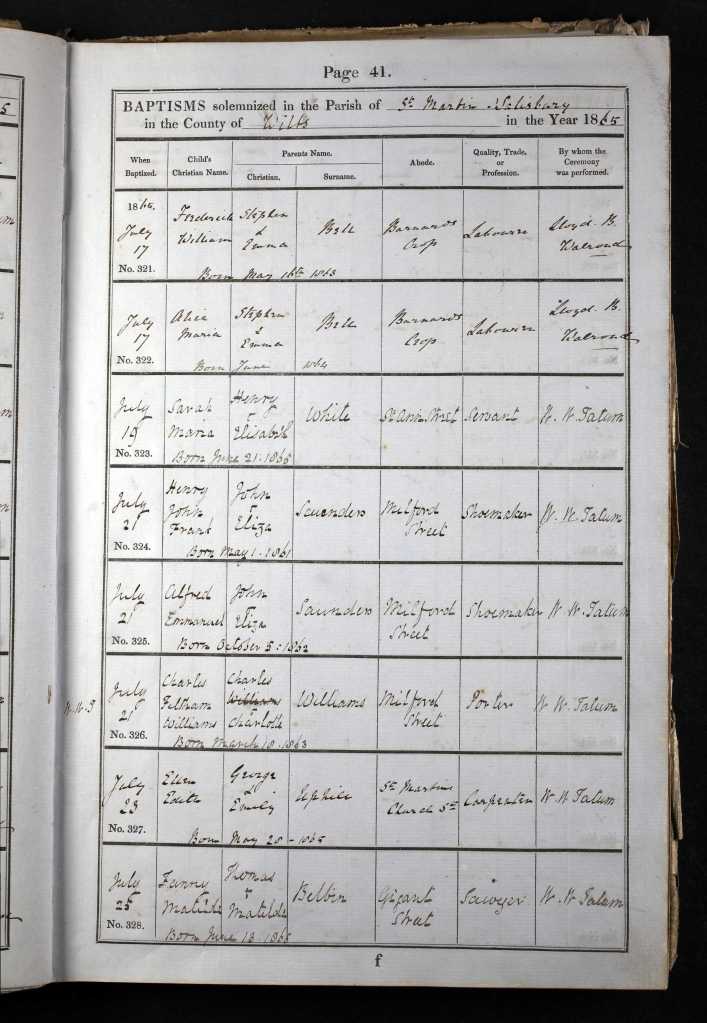 Page 41.
BAPTISMS solemnized in the Parish of St. Martin Salisbury
in the County of Wilts in the Year 1865
When Baptized. Child's Christian Name. Parents Name. Abode. Quality, Trade, or Profession. By whom the Ceremony was performed.
Christian. Surname.
1865.
July 17 Frederick William Stephen & Emma Labourer Lloyd. B. Walrond
No. 321. Born May 16th 1863
July 17 Alice Maria Stephen & Emma Labourer Lloyd. B. Walrond
No. 322. Born June 1864
July 19 Sarah Maria Henry & Elisabeth White St Ann Street Servant W. W. Tatum
No. 323. Born June 21. 1865
July 21 Henry John Frank John & Eliza Saunders Milford Street Shoemaker W. W. Tatum
No. 324. Born May 1. 1861
July 21 Alfred Emmanuel John & Eliza Saunders Milford Street Shoemaker W W. Tatum
No. 325. Born October 5: 1862
W. W. T
July 21 Charles Feltham Williams Charles William & Charlotte Williams Milford Street Porter W W. Tatum
No. 326. Born March 18. 1863
July 23 Ellen Edith George & Emily Uphill St. Martins Church St Carpenter W. W Tatum
No. 327. Born May 28 - 1865
July 25 Fanny Matilda Thomas & Matilda Belbin Gigant Street Sawyer W. W Tatum
No. 328. Born June 13. 1865
f